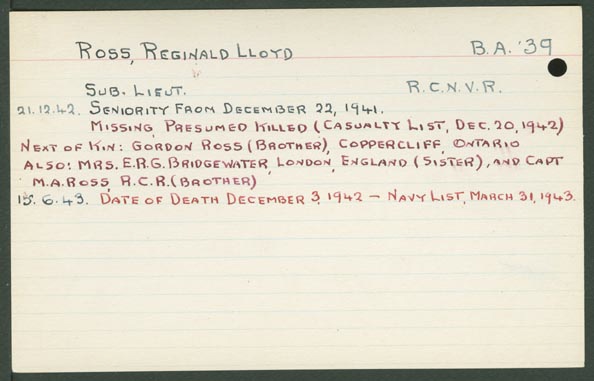 Ross, Reginald Lloyd B.A. '39
Sub. Lieut. R.C.N.V.R.
21.12.42. Seniority from December 22, 1941.
Missing, Presumed Killed (Casualty List, Dec. 20, 1942)
Next of Kin: Gordon Ross (Brother), Coppercliff, Ontario
Also: Mrs. E.R.G. Bridgewater, London, England (Sister), and Capt
M.A. Ross, R.C.R. (Brother)
15.6.43. Date of Death December 3, 1942 – Navy List, March 31, 1943.